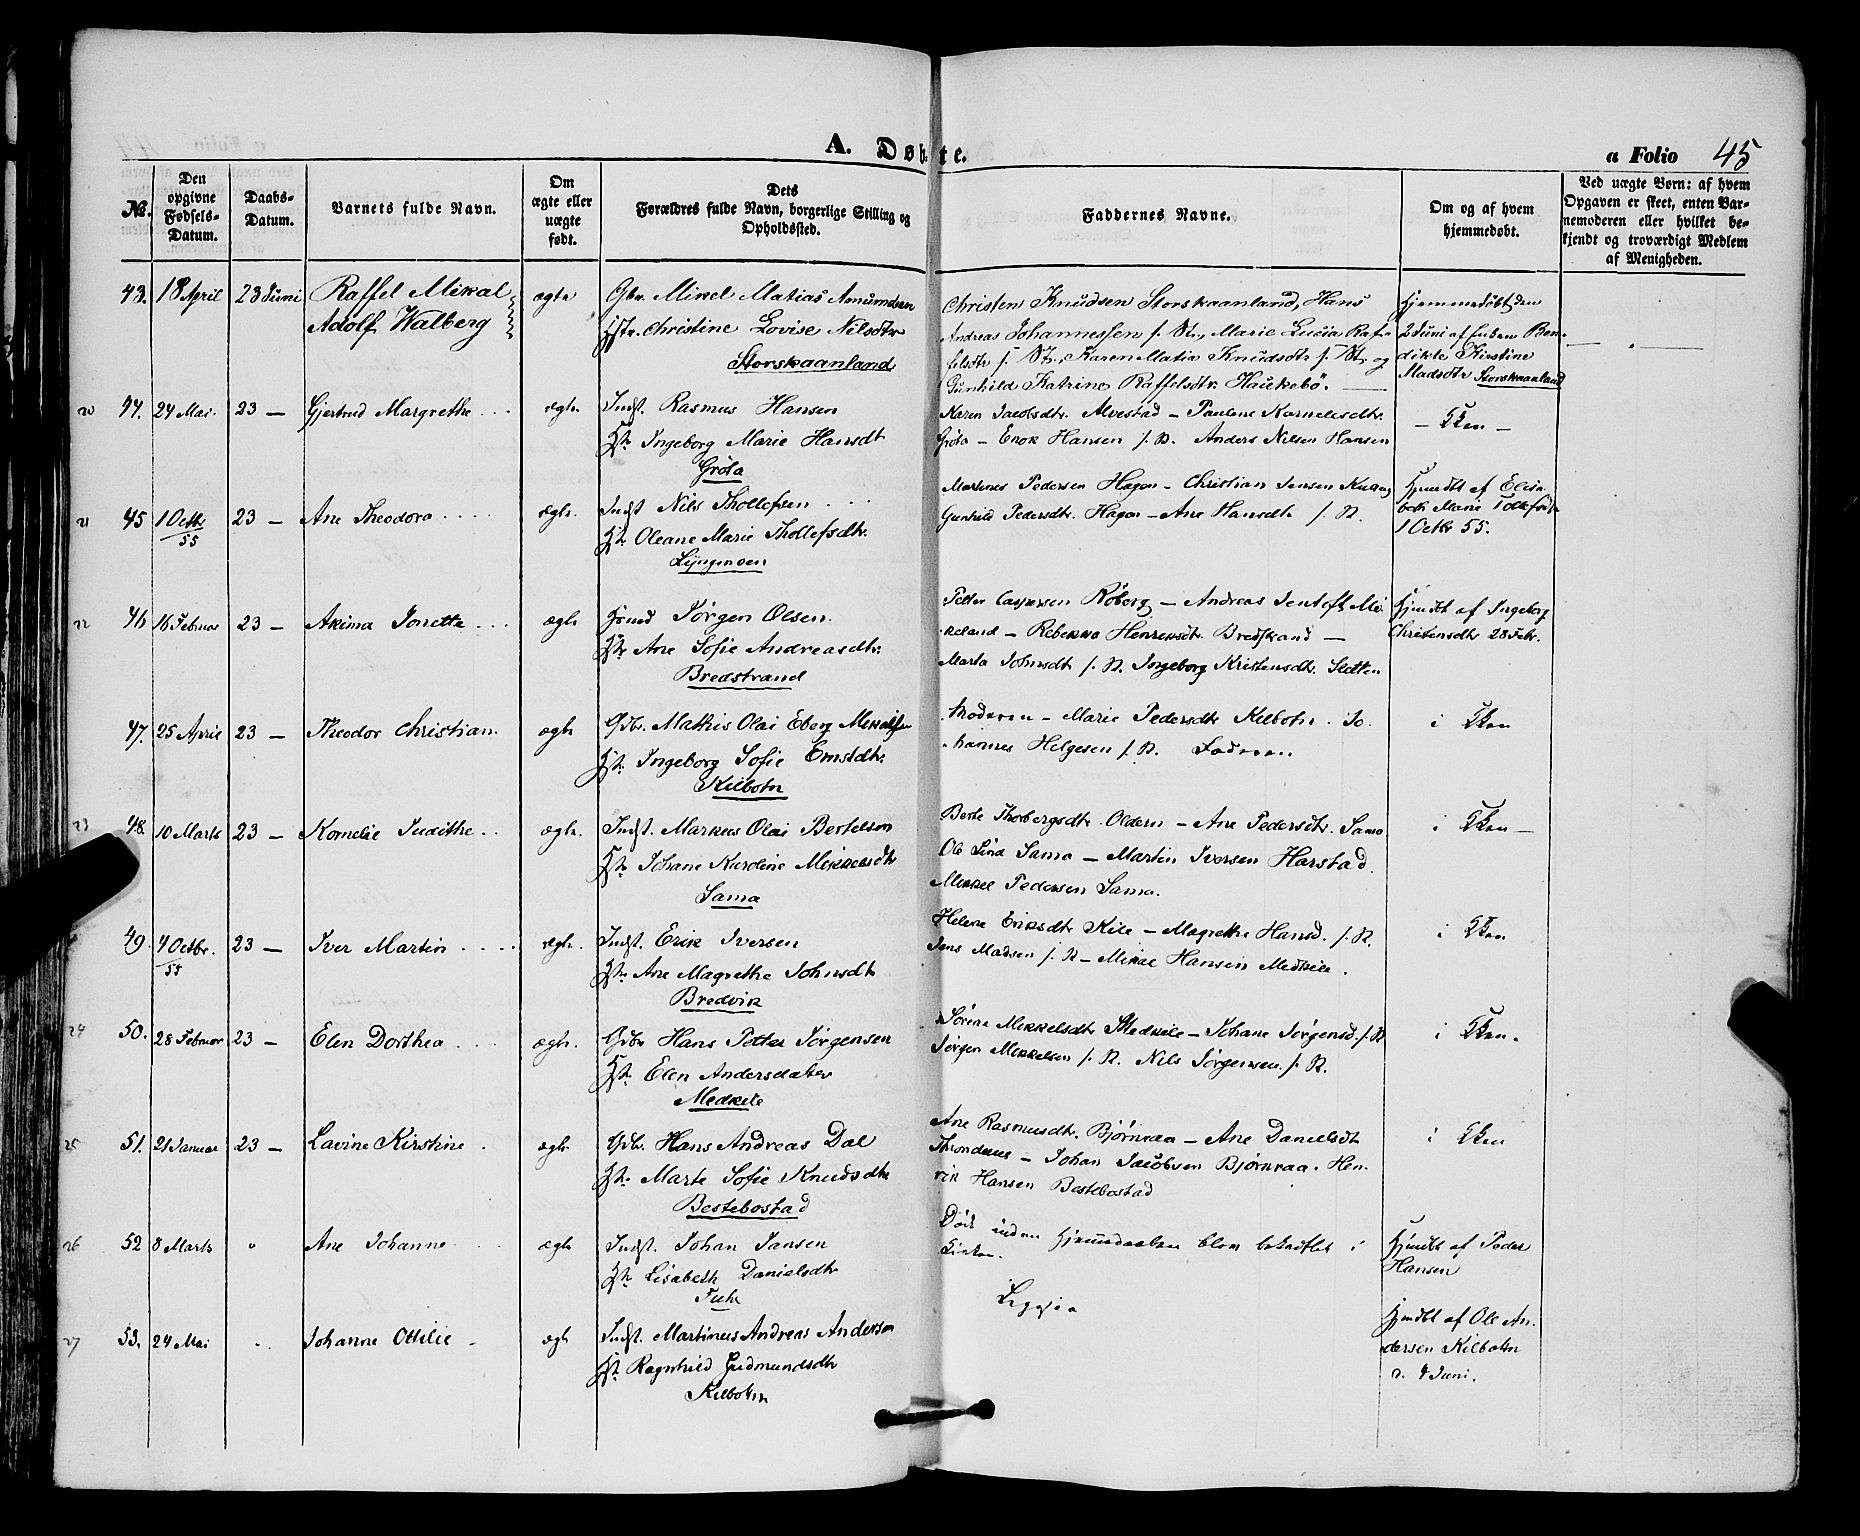 A. Døbte.
a Folio 45
№.
Den opgivne Fødsels-Datum.
Daabs-Datum.
Barnets fulde Navn.
Om ægte eller uægte født.
Dets Forældres fulde Navn, borgerlige Stilling og Opholdssted.
Faddernes Navne.
Om og af hvem hjemmedøbt.
Ved uægte Børn: af hvem Opgaven er skeet, enten Barnemoderen eller hvilket bekjendt og troværdigt Medlem af Menigheden.
43. 18 April 23 Juni Raffel Mikal ægte Gbr. Mikel Matias Amundsen
Adolf Walberg Hstr. Christine Lovise Nilsdtr
Storskaanland
Christen Knudsen Storskaanland, Hans
Andreas Johannessen s. St., Marie Lucia Raf-
felsdtr s. St., Karen Matia Knudsdtr s. St. og
Gunhild Katrine Raffelsdtr Haukebö.
Hjemmedöbt den
2 Juni af Enken Ben-
dikte Kirstine
Madsdtr Storskaanland
20 44. 24 Mai 23 — Gjertrud Margrethe ægte Indst. Rasmus Hansen
Hst. Ingeborg Marie Hansdt
Gröta
Karen Jacobsdtr. Alvestad — Paulene Kornelisdtr.
Gröta — Enok Hansen s. St. Anders Nilsen Hansen
— Kken —
21 45 1 Octbr 55 23 — Ane Theodora ægte. Indst Nils Thollefsen
Hst. Oleane Marie Thollefsdtr.
Lyngmoen
Martines Pedersen Hagan — Christian Jensen
Gunhild Pedersdtr. Hagan — Ane Hansdtr s. St.
Hjemdbt af Elisa-
bet Marie Tollefsdtr
1 Octbr 55.
22 46 16 Februar 23 — Akima Jonette ægte Jörgen Olsen.
Hst Ane Sofie Andreasdtr.
Bredstrand
Petter Caspersen Röberg — Andreas Jentoft Mæ-
keland — Rebekka Henriksdtr. Bredstrand —
Marta Johnsdt s. St. Ingeborg Kristensdtr. Sletten
Hjemdbt af Ingeborg
Christensdtr 28 Febr.
47. 25 April 23 — Theodor Christian ægte Gdbr. Mathis Olai Eberg Mikkelsen
Hst. Ingeborg Sofie Ernstdtr.
Kilbotn
Moderen — Marie Pedersdtr Kilbotn. Jo-
hannes Helgesen s. St. Faderen
i Kken
23 48. 10 Marts 23 — Kornelie Judithe ægte. Indst. Markus Olai Bertelsen
Hst. Johane Kardine Mikkelsdtr
Sama
Berte Thorbergsdtr. Oldern — Ane Pedersdtr. Sama
Ole Lind Sama — Martin Iversen Harstad.
Mikkel Pedersen Sama.
i Kken —
49. 4 Octbr. 55 23 — Iver Martin ægte. Indst. Erik Iversen
Hst. Ane Magrethe Johnsdtr
Bredvik
Helene Eriksdtr Kile — Magrethe Hansd. s. St.
Jens Madsen s. St — Mikal Hansen Medkile.
i Kken
24 50. 28 Februar 23 — Elen Dorthea ægte. Gdbr Hans Petter Jörgensen
Hst. Elen Andersdatter
Medkile
Sörine Mikkelsdtr Medkile — Johane Jörgensd. s. St
Jörgen Mikkelsen s. St. Nils Jörgensen s. St.
i Kken.
25 51. 21 Januar 23 — Lavine Kirstine ægte Gdbr. Hans Andreas Dal
Hst. Marte Sofie Knudsdtr
Bestebostad
Ane Rasmusdtr. Björnraa — Ane Danielsdt
Throndenes — Johan Jacobsen Björnraa. Hen-
rik Hansen Bestebostad
i Kken
26 52 8 Marts " Ane Johanne ægte Indst. Johan Jansen
Hst Lisabeth Danielsdtr
Död inden Hjemmedaaben blev bekræftet i
Kirken.
Hjmdbt af Peder
Hansen
27 53. 24 Mai " Johanne Ottilie ægte Indst. Martinus Andreas Andersen
Hst Ragnhild Gudmundsdtr
Kilbotn
Hjmdbt af Ole An-
dersen Kilbotn
d. 4 Juni.